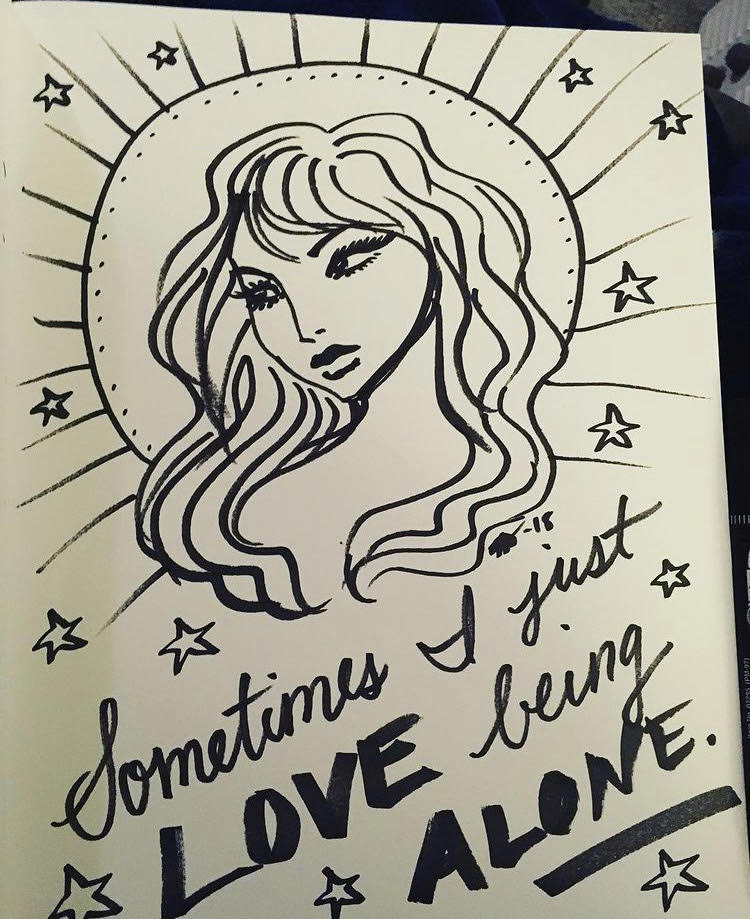 -18
Sometimes I just
LOVE being
ALONE.